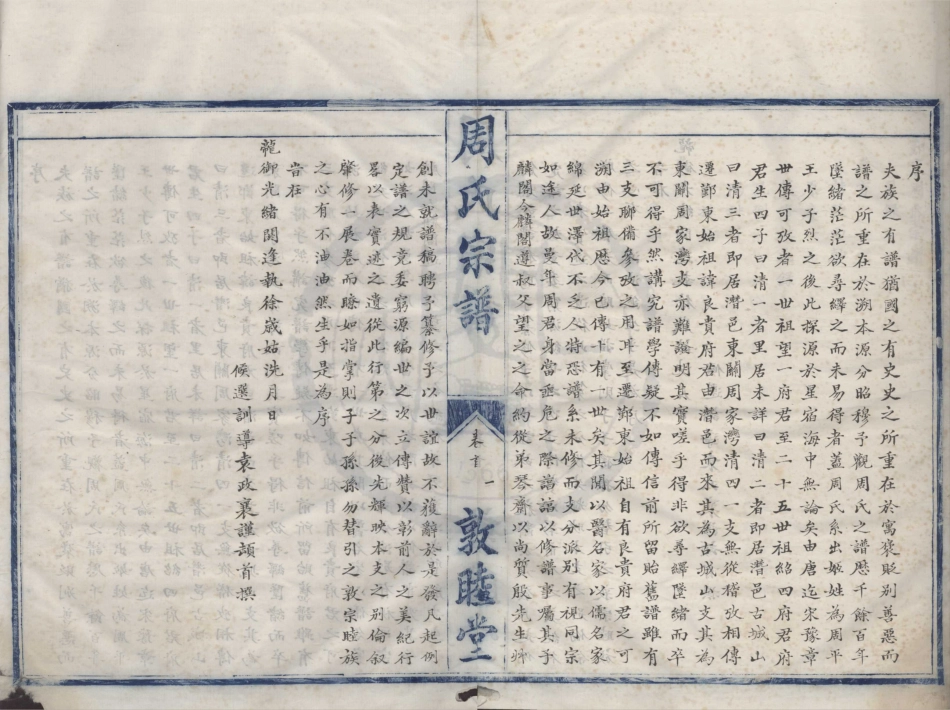 序
夫族之有譜猶國之有史史之所重在於寓襃貶別善惡而
譜之所重在於溯本源分昭穆予觀周氏之譜歴千餘百年
墜緒茫茫欲尋繹之而未易得者蓋周氏系出姬姓為周平
王少子烈之後此探源於星宿海中無論矣由唐迄宋豫章
世傳可攷者一世祖望一府君至二十五世祖紹四府君府
君生四子曰清一者里居未詳曰清二者即居潛邑古城山
曰清三者即居潛邑東關周家灣清四一支無從稽攷相傳
遷鄭東始祖諱良貴府君由潛邑而來其為古城山支其為
東關周家灣支亦難證明其實嗟乎得非欲尋繹墜緒而卒
不可得乎然講究譜學傳疑不如傳信前所留貽舊譜雖有
三支聯備參攷之用耳至遷鄭東始祖自有良貴府君之可
溯由始祖歴今已傳十有一世矣其間以醫名家以儒名家
綿延世澤代不乏人特恐譜系未修而支分派別有視同宗
如途人故曼年周君身當垂危之際諄諄以修譜事屬其子
麟閣今麟閣遵叔父望之之命約從弟琴齋以尚質殷先生
周氏宗譜
卷首
一
敦睦堂
創未就譜稿聘予纂修予以世誼故不獲辭於是發凡起例
定譜之規竟委窮源編世之次立傳贊以彰前人之美紀行
畧以表實迹之遺從此行第之分後先輝映本支之別倫叙
肇修一展卷而瞭如指掌則子子孫孫勿替引之敦宗睦族
之心有不油油然生乎是為序
旹在
龍御光緒閼逢執徐歲姑洗月日
候選訓導袁政襄謹頓首撰